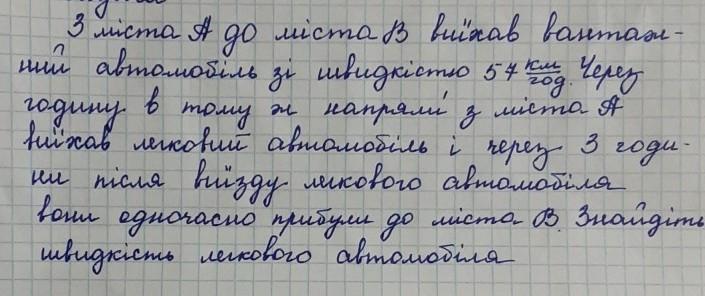 З міста А до міста В виїхав вантаж-
ний автомобіль зі швидкістю 57 км/год. Через
годину в тому ж напрямі з міста А
виїхав легковий автомобіль і через 3 годи-
ни після виїзду легкового автомобіля
вони одночасно прибули до міста В. Знайдіть
швидкість легкового автомобіля